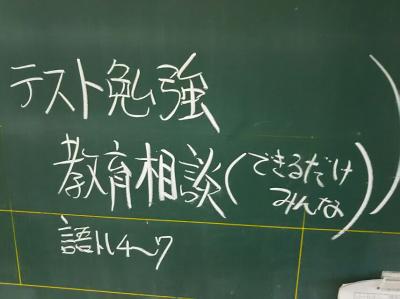 テスト勉強
教育相談(できるだけ
みんな))
語トレ4〜7